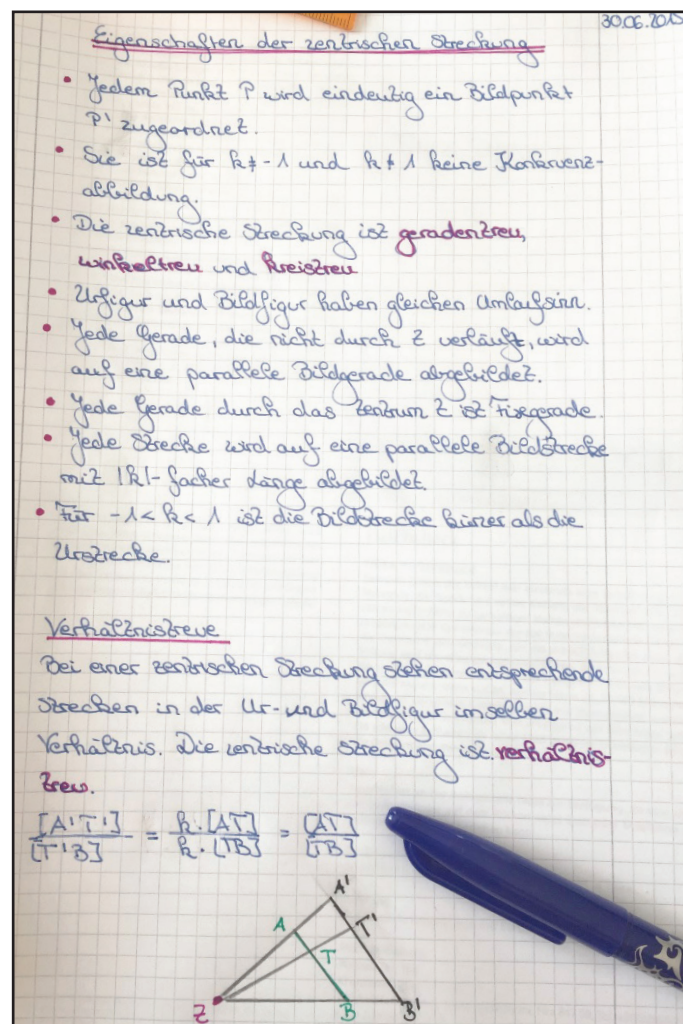 30.06.2015
Eigenschaften der zentrischen Streckung
• Jedem Punkt P wird eindeutig ein Bildpunkt
P' zugeordnet.
• Sie ist für k ≠ -1 und k ≠ 1 keine Konkruenz-
abbildung.
• Die zentrische Streckung ist geradentreu,
winkeltreu und kreistreu
• Urfigur und Bildfigur haben gleichen Umlaufsinn.
• Jede Gerade, die nicht durch Z verläuft, wird
auf eine parallele Bildgerade abgebildet.
• Jede Gerade durch das Zentrum Z ist Fixgerade.
• Jede Strecke wird auf eine parallele Bildstrecke
mit |k|-facher Länge abgebildet.
• Für -1 < k < 1 ist die Bildstrecke kürzer als die
Urstrecke.
Verhältnistreue
Bei einer zentrischen Streckung stehen entsprechende
Strecken in der Ur- und Bildfigur im selben
Verhältnis. Die zentrische Streckung ist verhältnis-
treu.
[A'T']/[T'B] = k·[AT]/k·[TB] = [AT]/[TB]
A'
A
T'
T
Z
B
B'